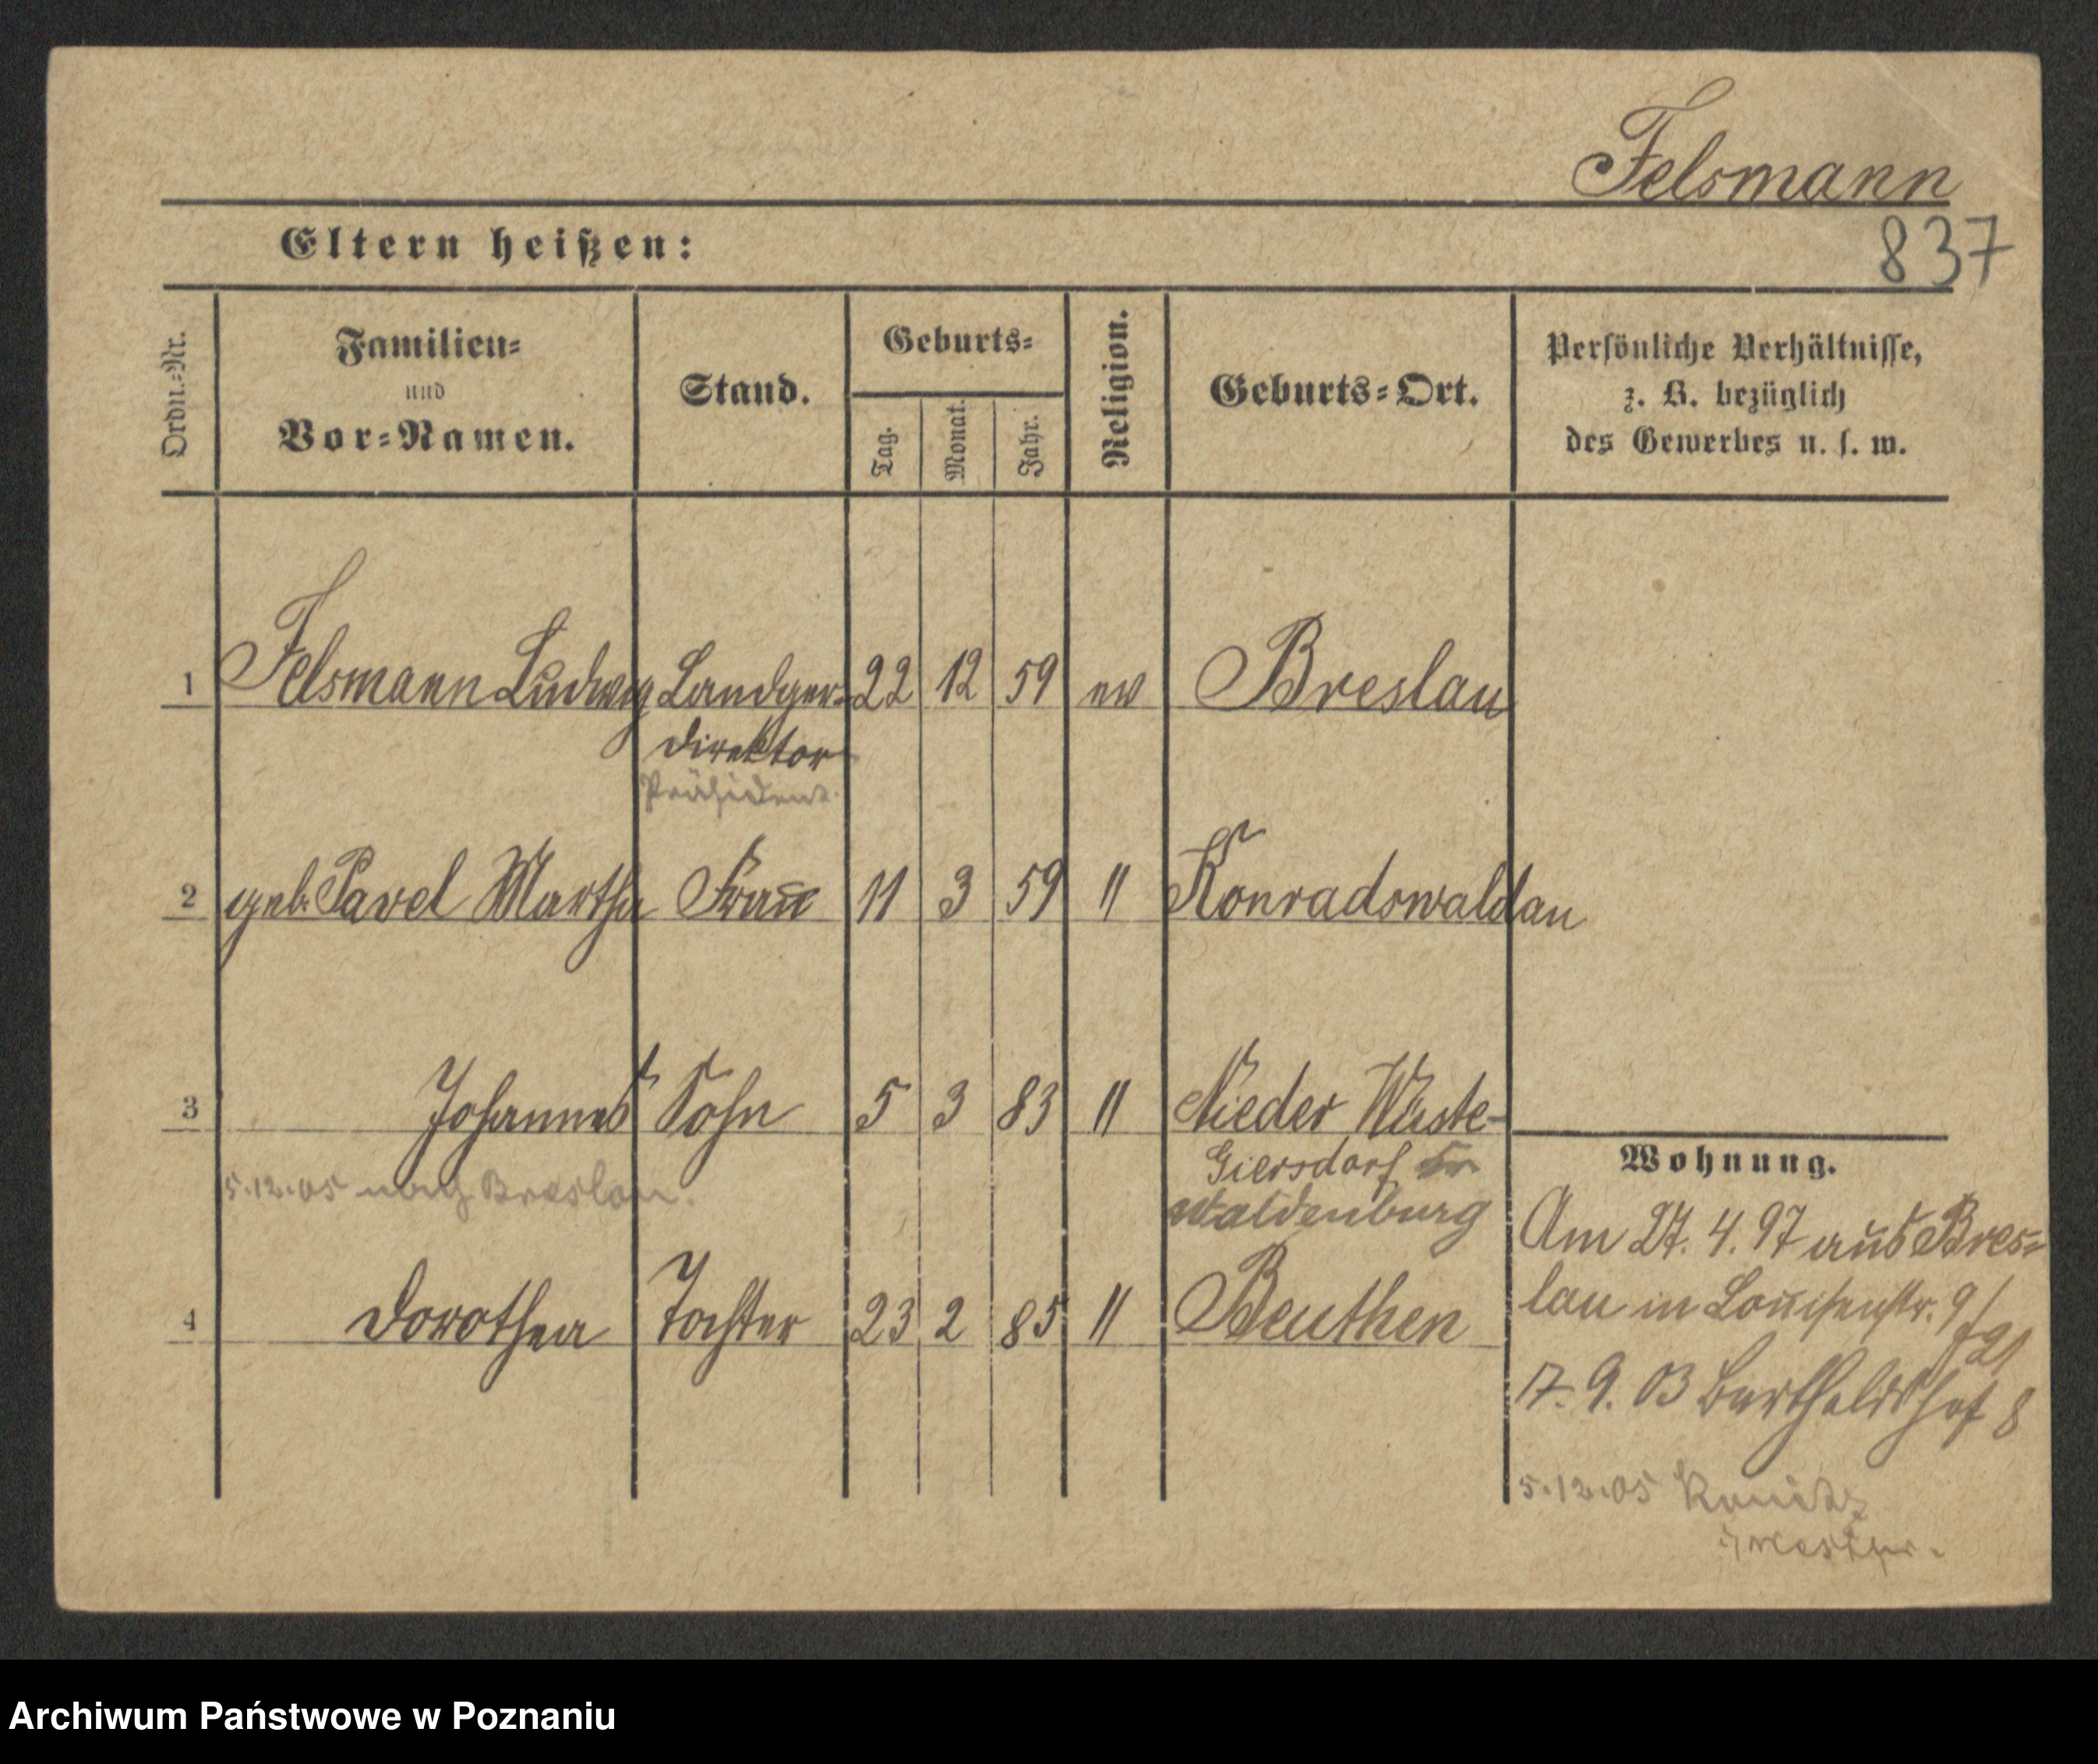 Felsmann
Eltern heißen:
837
Ordn.=Nr.
Familien=
und
Vor=Namen.
Stand.
Geburts=
Tag.
Monat.
Jahr.
Religion.
Geburts=Ort.
Persönliche Verhältnisse,
z. B. bezüglich
des Gewerbes u. s. w.
1 Felsmann Ludwig Landger= 22 12 59 ev Breslau
Direktor
Präsident.
2 geb. Pavel Martha Frau 11 3 59 " Konradswaldau
3 Johannes Sohn 5 3 83 " Nieder Wüste-
Giersdorf Kr.
Waldenburg
5.12.05 nach Breslau.
4 Dorothea Tochter 23 2 85 " Beuthen
Wohnung.
Am 27. 4. 97 aus Bres=
lau in Louisenstr. 9/
17. 9. 03 Bertholdshof 8
5.12.05 Konitz
Westpr.
Archiwum Państwowe w Poznaniu